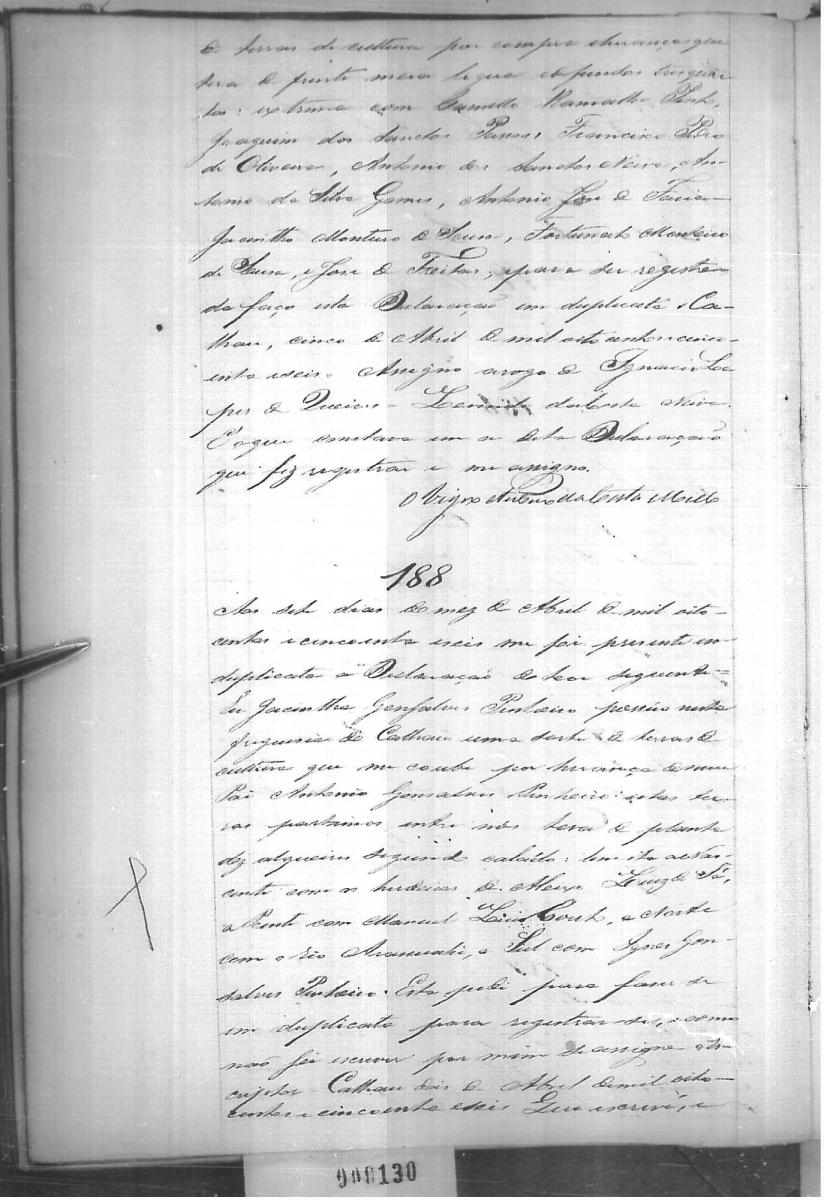 de terras de cultura por compra e herança, que
terá de frente meia legua e fundos tres quar
tos: extrema com Camillo Ramalho Pinto,
Joaquim dos Sanctos Passos, Francisco Pedro
de Oliveira, Antonio dos Sanctos Neiva, An-
tonio da Silva Gomes, Antonio Jose de Faria
Jacintho Monteiro de Sousa, Fortunato Monteiro
de Sousa, e Jose de Freitas, e para ser registra-
da faço esta Declaração em duplicata. Ca-
lhau, cinco de Abril de mil oito centos e cinco-
enta e seis. Assigno a rogo de Ignacio Lo
pes de Queiros. da Costa Neiva.
E o que constava em a dita Declaração
que fiz registrar e me assigno.
O Vigro da Costa Mello
188
Aos sete dias do mez de Abril de mil oito-
centos e cincoenta e seis me foi presente em
duplicata a Declaração do teor seguinte =
Eu Jacintha Gonsalves Pinheiro possuo nesta
freguesia do Calhau uma sorte de terras de
cultura que me coube por herança de meu
Pai Antonio Gonsalves Pinheiro: estas ter-
ras partimos entre nós terá de planta
dez alqueires segundo calculo: limita ao Nas-
cente com os herdeiros de de Sá,
o Poente com Manoel Couto, o Norte
com o rio Arassuahi, o Sul com Ignes Gon-
salves Pinheiro. Esta pedi para faser se
em duplicata para registrar se, e como
não sei escrever por mim se assigna
Calhau dois de Abril de mil oito-
centos e cincoenta e seis Que escrevi, e
000130